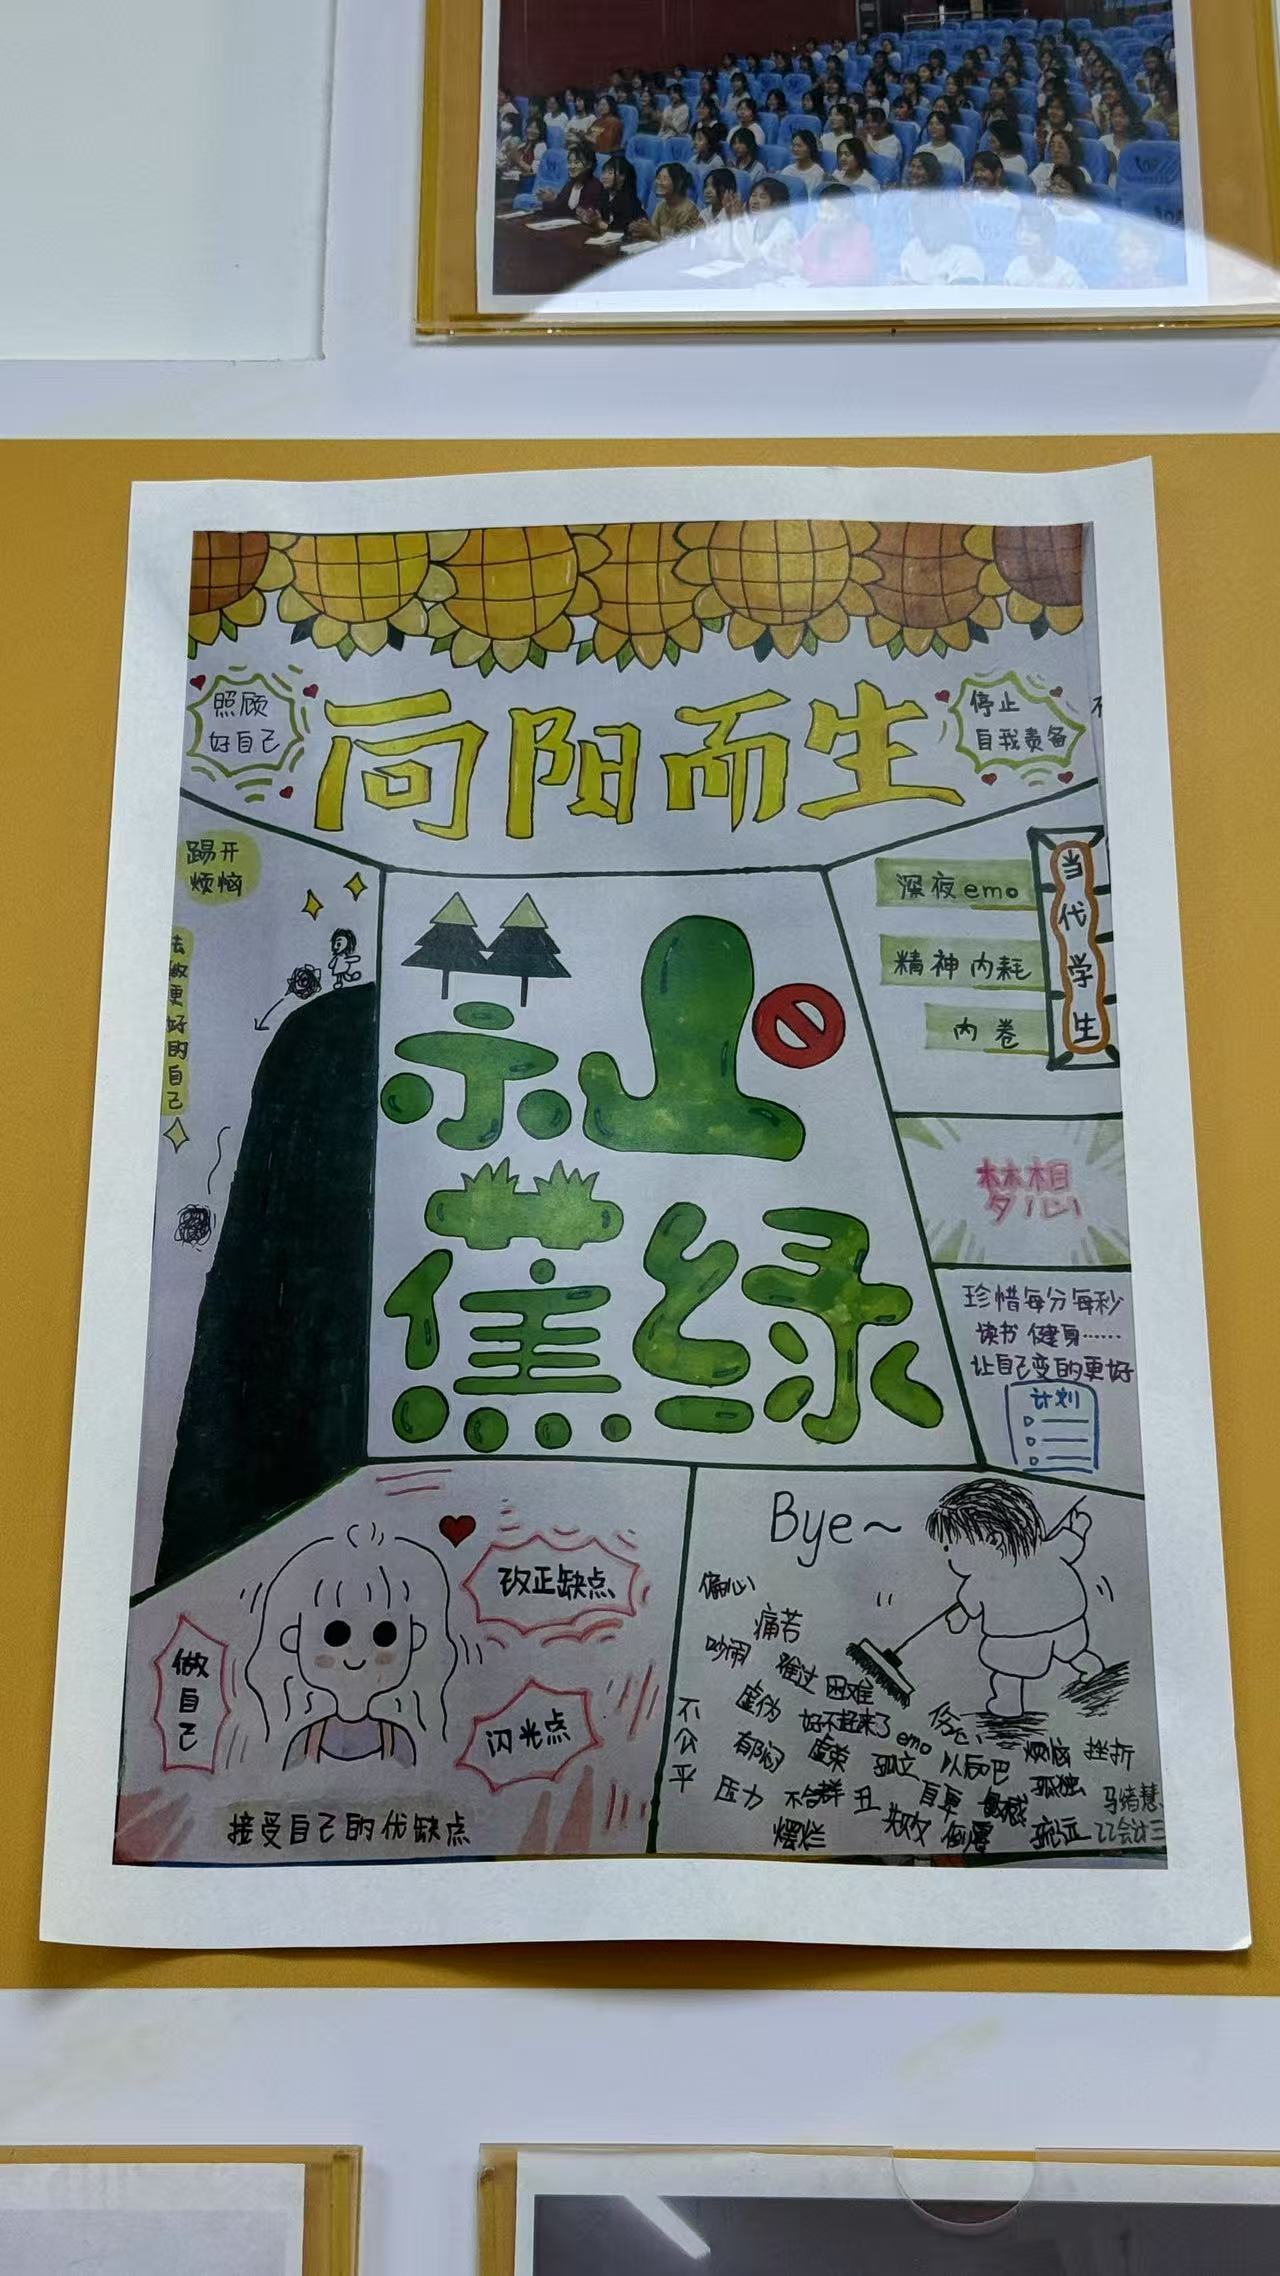 照顾
好自己
向阳而生
停止
自我责备
踢开
烦恼
去做更好的自己
禁止
蕉绿
当代学生
深夜emo
精神内耗
内卷
梦想
珍惜每分每秒
读书 健身……
让自己变的更好
计划
做自己
改正缺点
闪光点
接受自己的优缺点
Bye~
偏心
痛苦
吵闹
难过 困难
虚伪
好不起来了
emo
伤心
不公平
郁闷
虚荣
孤立
以后吧
烦恼
挫折
压力
不合群
丑
自卑
敏感
孤独
摆烂
失败
马绪慧
22会计三